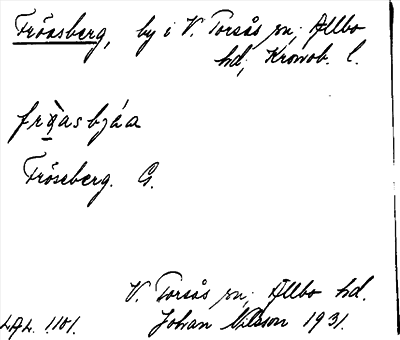 Fröasberg, by i V. Torsås sn; Allbo
hd, Kronob. l.
fröasbjäa
Fröseberg. G.
V. Torsås sn; Allbo hd.
LAL. 1101. Johan Nilsson 1931.